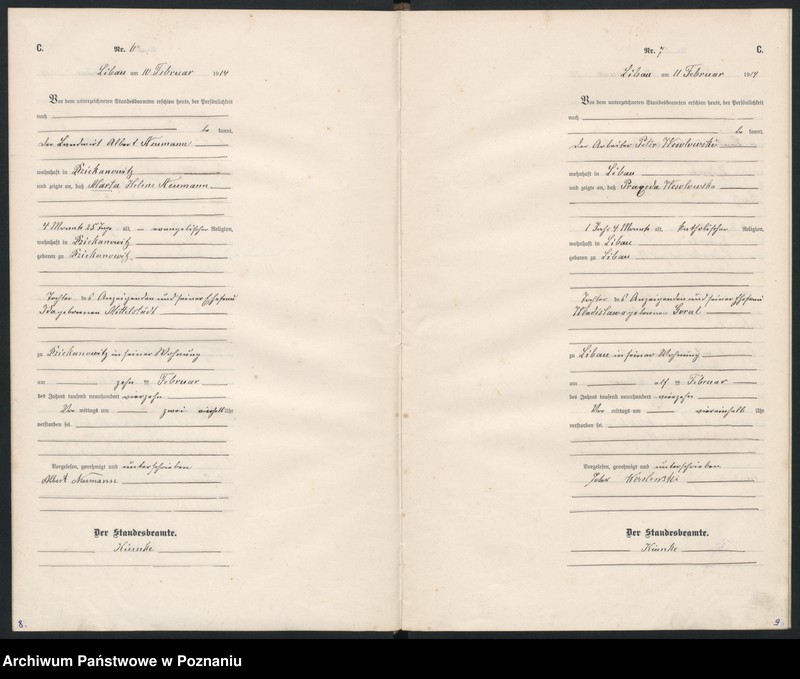 C.
Nr. 6
Libau am 10. Februar 1914
Vor dem unterzeichneten Standesbeamten erschien heute, der Persönlichkeit
nach
be kannt,
der Landwirt Albert Neumann
wohnhaft in Dziekanowitz
und zeigte an, daß Marta Helene Neumann
4 Monate 25 Tage alt, evangelischer Religion,
wohnhaft in Dziekanowitz
geboren zu Dziekanowitz
Tochter des Anzeigenden und seiner Ehefrau
Ida geborenen Mittelstädt
zu Dziekanowitz in seiner Wohnung
am zehn ten Februar
des Jahres tausend neunhundert vierzehn
Vor mittags um zwei einhalb Uhr
verstorben sei.
Vorgelesen, genehmigt und unterschrieben
Albert Neumann
Der Standesbeamte.
Kienke
8.
Nr. 7
C.
Libau am 11. Februar 1914
Vor dem unterzeichneten Standesbeamten erschien heute, der Persönlichkeit
nach
be kannt,
der Arbeiter Peter Wesolowski
wohnhaft in Libau
und zeigte an, daß Praxeda Wesolowska
1 Jahr 4 Monate alt, katholischer Religion,
wohnhaft in Libau
geboren zu Libau
Tochter des Anzeigenden und seiner Ehefrau
Wladislawa geborenen
zu Libau in seiner Wohnung
am elf ten Februar
des Jahres tausend neunhundert vierzehn
Vor mittags um viereinhalb Uhr
verstorben sei.
Vorgelesen, genehmigt und unterschrieben
Wesolowski
Der Standesbeamte.
Kienke
9.
Archiwum Państwowe w Poznaniu